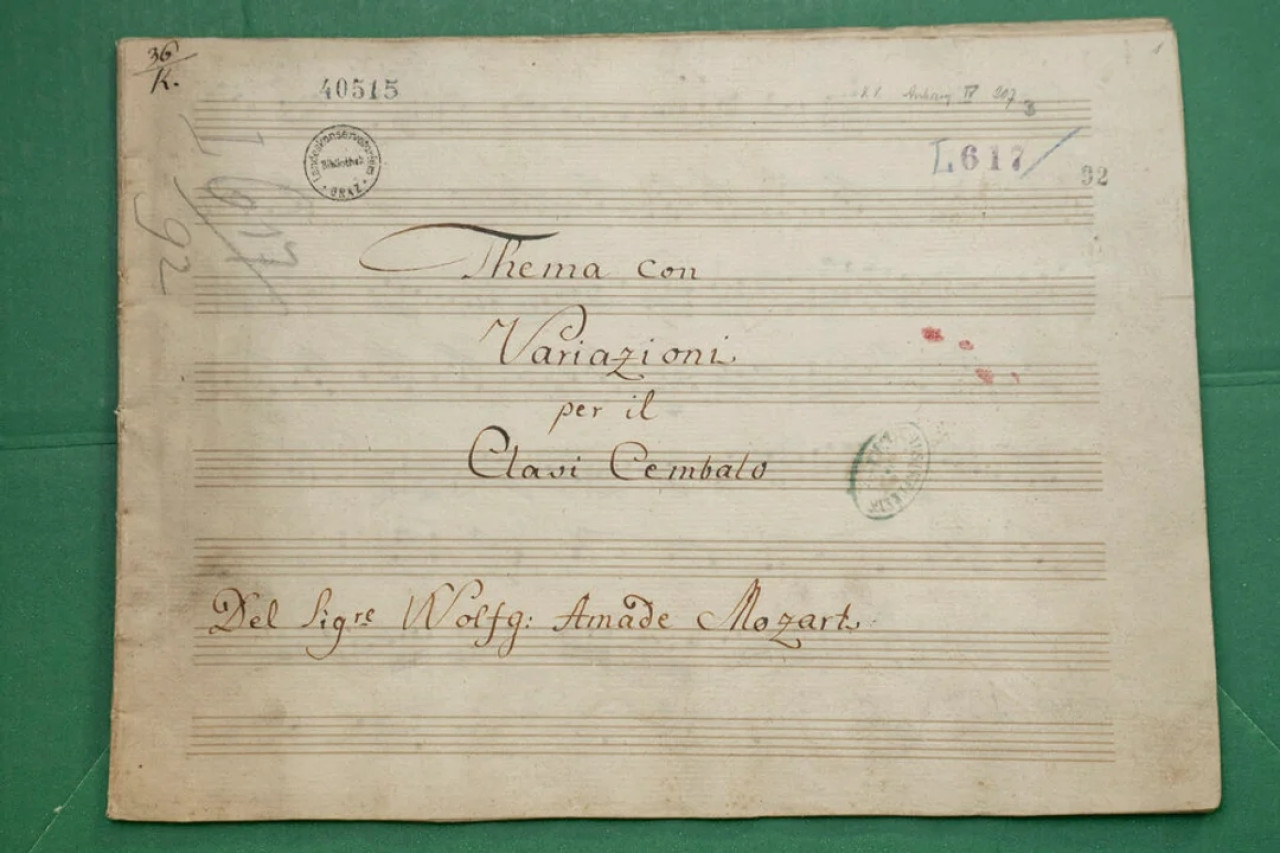 36
K.
40515
Landeskonservatorium
Bibliothek
GRAZ
IV 207
L617
92
L 617
92
Thema con
Variazioni
per il
Clavi Cembalo
Del Sigre Wolfg: Amade Mozart.